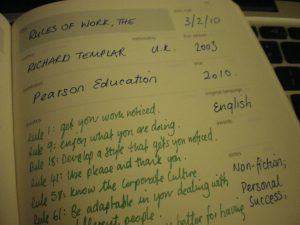 title
RULES OF WORK, THE
3/2/10
RICHARD TEMPLAR
U.K.
2003
Pearson Education
year
2010.
original language
English
Rule 1: get your work noticed.
Rule 9: Enjoy what you are doing.
Rule 18: Develop a style that gets you noticed.
Rule 41: Use please and thank you.
Rule 58: Know the Corporate Culture
Rule 61: Be adaptable in your dealing with
different people.
better for having
awards
notes
Non-fiction;
Personal
Success.